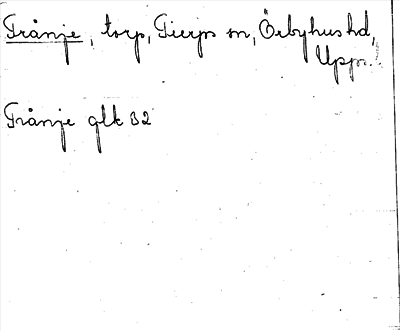 Trånje, torp, Tierps sn, Örbyhus hd,
Uppl.
Trånje glk 32